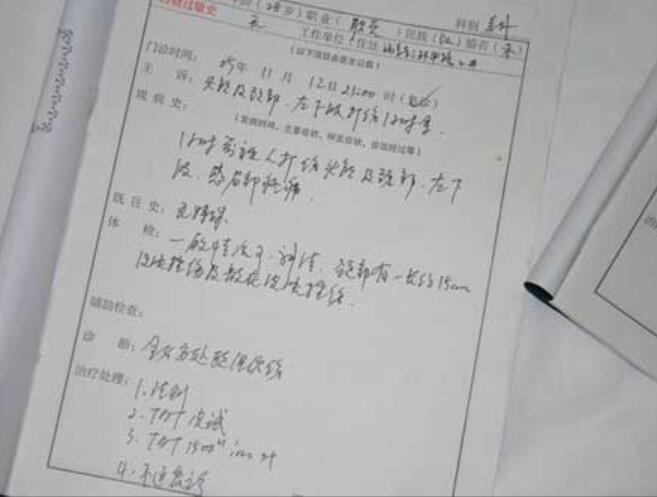 药物过敏史
岁）职业（职员）民族（汉）婚否（未）
科别 急外
无 工作单位（住址
（以下项目由医生记载）
门诊时间：05年 11月 12日 23:00时（急诊）
主 诉：头部及颈部、左下肢打伤1小时余.
现 病 史：
（发病时间、主要症状、伴发症状、诊治经过等）
1小时前被人打伤头部及颈部、左下
肢，感局部疼痛.
既 往 史：无特殊.
体 检：
一般情况可、神清，颈部有一长约15cm
皮肤挫伤及散在皮肤挫伤.
辅助检查：
诊 断：全身多处软组织伤
治疗处理：1. 清创
2. TAT 皮试
3. TAT 1500 im st
4. 不适随诊